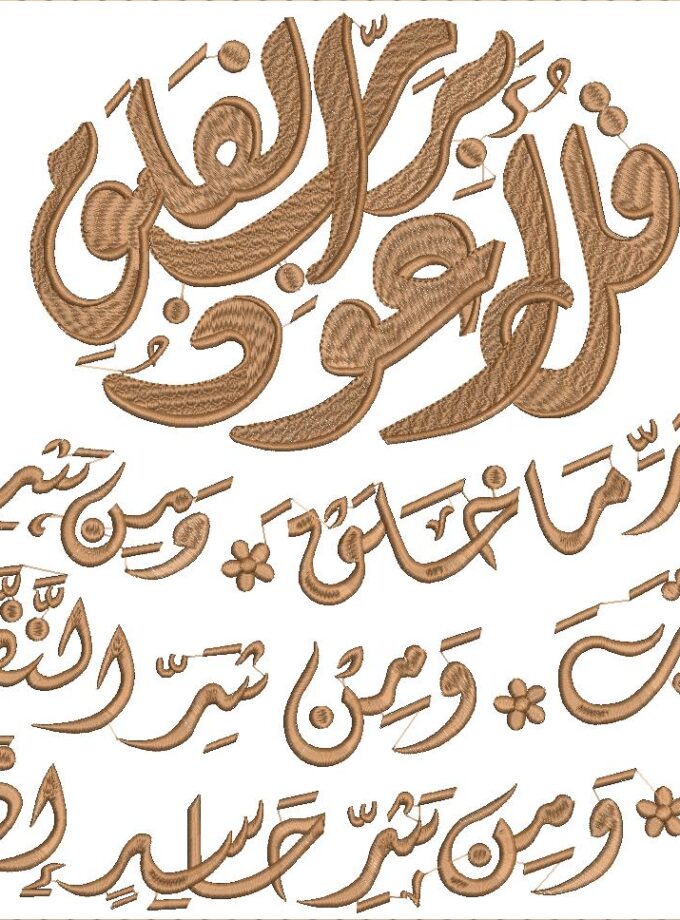 قُل أعوذُ بِرَبِّ الفَلَقِ
مَا خَلَقَ وَمِن
وَمِنْ شَرِّ
وَمِن شَرِّ حَاسِدٍ